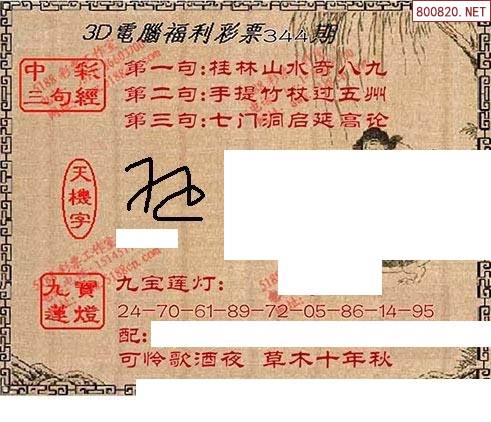 800820.NET
3D電腦福利彩票344期
中彩三句經
第一句:桂林山水奇八九
第二句:手提竹杖过五州
第三句:七门洞启延高论
天機字
九寶蓮燈
九宝莲灯:
24-70-61-89-72-05-86-14-95
配:
可怜歌酒夜 草木十年秋